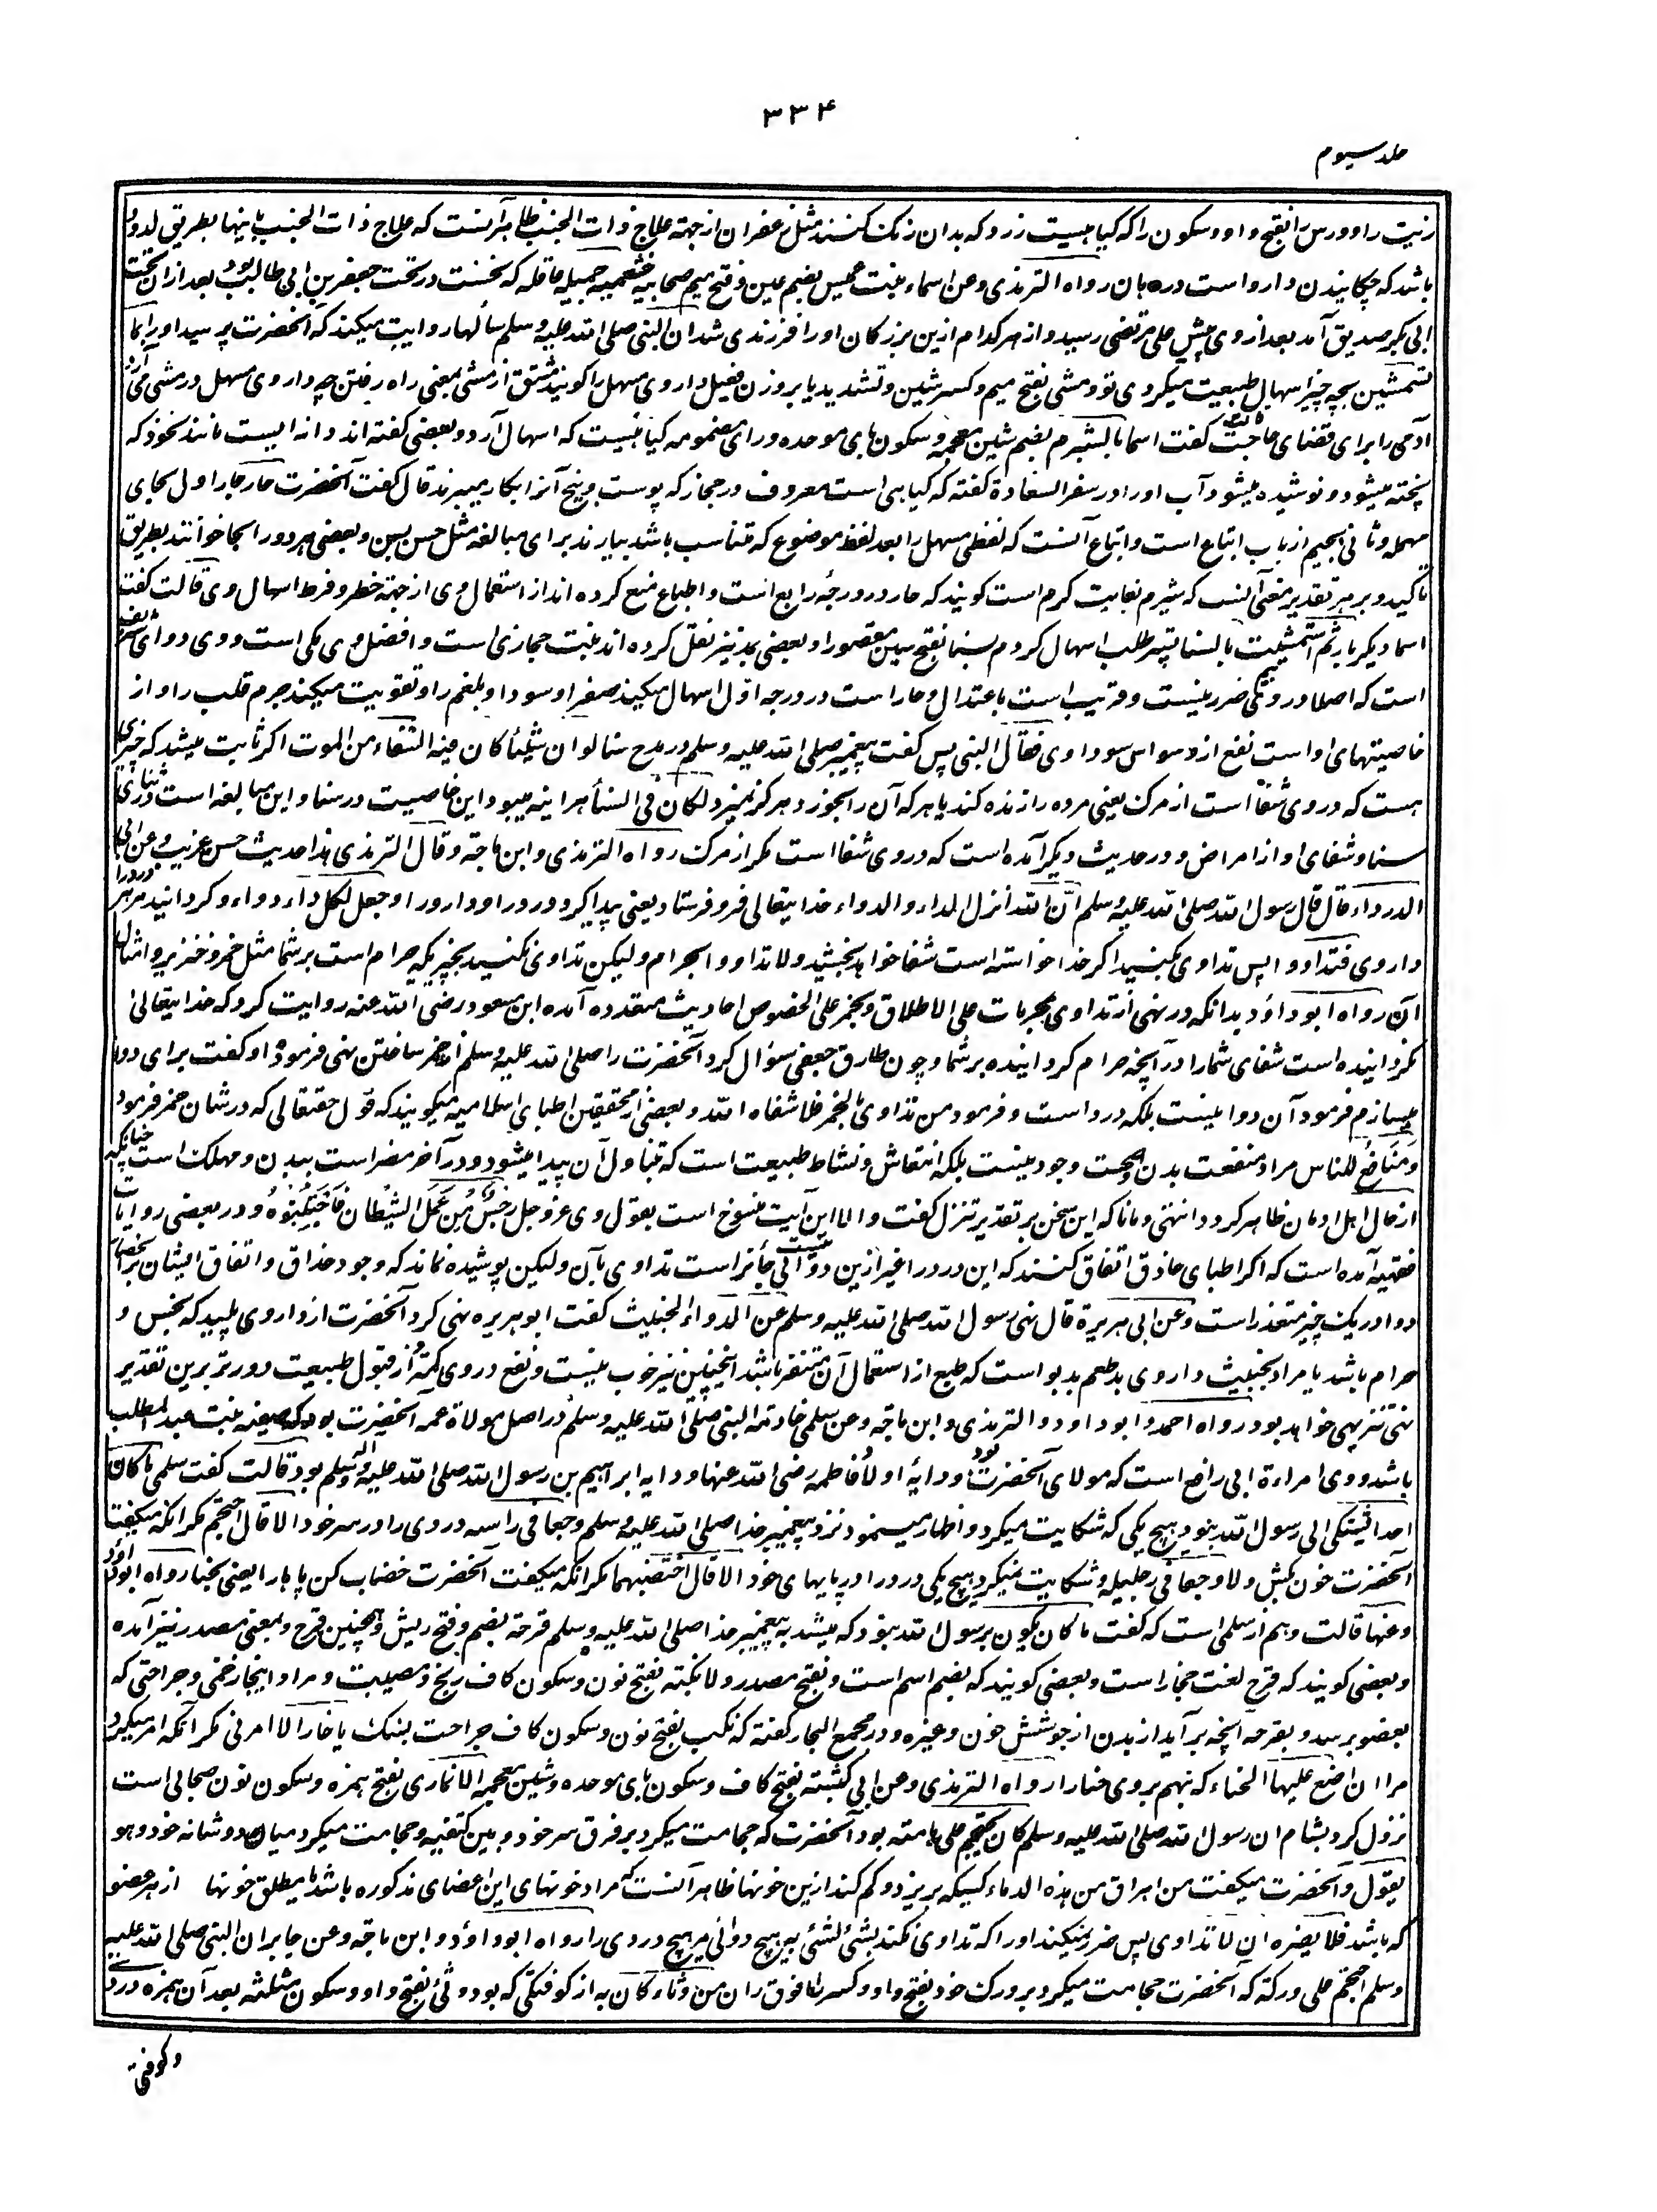 ۳۳۴
جلد سیوم
زیت را و ورس را بفتح واو و سکون را که گیاهیست زرد که بدان رنگ کنند مثل زعفران از جهة علاج ذات الجنب ظاهر آنست که علاج ذات الجنب باینها بطریق لدود
باشد که چکانیدن دارو است در دهان رواه الترمذی وعن اسماء بنت عمیس بضم عین و فتح میم صحابیه خثعمیه جمیله عاقله که نخست در تحت جعفر بن ابی طالب بود بعد ازان تحت
ابی بکر صدیق آمد بعد از وی پیش علی مرتضی رسید و از هر کدام ازین بزرگان او را فرزندی شد ان النبی صلی الله علیه وسلم سألها روایت میکند که آنحضرت پرسید او را بما
تستمشین بچه چیز اسهال طبیعت میکردی تو و مشی بفتح میم و کسر شین و تشدید یا بر وزن فعیل داروی مسهل را گویند مشتق از مشی بمعنی راه رفتن چه داروی مسهل در مشی می آرد
آدمی را برای قضای حاجت قالت گفت اسما بالشبرم بضم شین معجمه و سکون بای موحده و رای مضمومه گیاهیست که اسهال آرد و بعضی گفته اند دانه ایست مانند نخود که
پخته میشود و نوشیده میشود آب او را در سفر السعادة گفته که گیاهی است معروف در حجاز که پوست و بیخ آنرا بکار میبرند قال گفت آنحضرت حار جار اول بحای
مهمله و ثانی بجیم از باب اتباع است و اتباع آنست که لفظی مهمل را بعد لفظ موضوع که متناسب باشد بیارند برای مبالغه مثل حسن بسن و بعضی هر دو را بحا خوانند بطریق
تاکید و بر هر تقدیر معنی آنست که شبرم بغایت گرم است گویند که حار در درجۀ رابع است و اطبا منع کرده اند از استعمال وی از جهة خطر و فرط اسهال وی قالت گفت
اسما دیگر بار ثم استمشیت بالسنا پستر طلب اسهال کردم بسنا بفتح سین مقصور او بعضی بمد نیز نقل کرده اند نبت حجازی است و افضل وی مکی است و وی دوای شریف
است که اصلا در وی هیچ ضرر نیست و قریب است باعتدال و حار است در درجه اول اسهال میکند صفرا و سودا و بلغم را و تقویت میکند جرم قلب را و از
خاصیتهای او است نفع از وسواس سوداوی فقال النبی پس گفت پیغمبر صلی الله علیه وسلم در مدح سنا لو ان شیئا کان فیه الشفاء من الموت اگر ثابت میشد که چیزی
هست که در وی شفا است از مرگ یعنی مرده را زنده کند یا هر که آن را بخورد هرگز نمیرد لکان فی السنا هر آینه میبود این خاصیت در سنا و این مبالغه است در ثنای
سنا و شفای او از امراض و در حدیث دیگر آمده است که در وی شفا است مگر از مرگ رواه الترمذی وابن ماجة وقال الترمذی هذا حدیث حسن غریب وعن ابی
الدرداء قال قال رسول الله صلی الله علیه وسلم ان الله انزل الداء والدواء خدا یتعالی فرو فرستاد یعنی پیدا کرد درد را و دارو را وجعل لکل داء دواء و گردانید مر هر درد را
داروی فتداووا پس تداوی بکنید اگر خدا خواسته است شفا خواهد بخشید ولا تداووا بحرام و لیکن تداوی نکنید بچیزیکه حرام است بر شما مثل خمر و خنزیر و امثال
آن رواه ابو داؤد بدانکه در نهی از تداوی بمحرمات علی الاطلاق و بخمر علی الخصوص احادیث متعدده آمده ابن مسعود رضی الله عنه روایت کرد که خدا یتعالی
نگردانیده است شفای شما را در آنچه حرام گردانیده بر شما و چون طارق جعفی سؤال کرد آنحضرت را صلی الله علیه وسلم از خمر ساختن نهی فرمود او گفت برای دوا
میسازم فرمود آن دوا نیست بلکه درد است و فرمود من تداوی بالخمر فلا شفاه الله و بعضی از محققین اطبای اسلامیه میگویند که قول حقتعالی که در شان خمر فرمود
وَمَنَافِعُ للناس مراد منفعت بدن و صحت وجود نیست بلکه انتعاش و نشاط طبیعت است که بتناول آن پیدا میشود و در آخر مضر است ببدن و مهلک است چنانکه
از حال اهل ادمان ظاهر گردد انتهی و مانا که این سخن بر تقدیر تنزل گفت والا این آیت منسوخ است بقول وی عز وجل رِجْسٌ مِّنْ عَمَلِ الشَّیْطَانِ فَاجْتَنِبُوهُ و در بعضی روایات
فقهیه آمده است که اگر اطبای حاذق اتفاق کنند که این درد را غیر ازین دوائی نیست جائز است تداوی بآن و لیکن پوشیده نماند که وجود حذاق و اتفاق ایشان بر انحصار
دوا در یک چیز متعذر است وعن ابی هریرة قال نهی رسول الله صلی الله علیه وسلم عن الدواء الخبیث گفت ابو هریره نهی کرد آنحضرت از داروی پلید که نجس و
حرام باشد یا مراد بخبیث داروی بدطعم بدبو است که طبع از استعمال آن متنفر باشد اینچنین نیز خوب نیست و نفع در وی کمتر و از قبول طبیعت دورتر برین تقدیر
نهی تنزیهی خواهد بود رواه احمد وابو داود والترمذی وابن ماجة وعن سلمی خادمة النبی صلی الله علیه وسلم در اصل مولاة عمه آنحضرت بود که صفیه بنت عبد المطلب
باشد و وی امراءة ابی رافع است که مولای آنحضرت بود و دایۀ اولاد فاطمه رضی الله عنها و دایه ابراهیم بن رسول الله صلی الله علیه وآله وسلم بود قالت گفت سلمی ما کان
احد یشتکی الی رسول الله نبود هیچ یکی که شکایت میکرد و اظهار مینمود نزد پیغمبر خدا صلی الله علیه وسلم وجعا فی راسه دردی را در سر خود الا قال احتجم مگر آنکه میگفت
آنحضرت خون بکش ولا وجعا فی رجلیه و شکایت نمیکرد هیچ یکی درد را در پایهای خود الا قال اختضبهما مگر آنکه میگفت آنحضرت خضاب کن پاها را یعنی بحنا رواه ابو داؤد
وعنها قالت و هم از سلمی است که گفت ما کان یکون برسول الله نبود که میشد به پیغمبر خدا صلی الله علیه وسلم قرحة بضم و فتح ریش و همچنین قرح و بمعنی مصدر نیز آمده
و بعضی گویند که قرح لغت حجاز است و بعضی گویند که بضم اسم است و بفتح مصدر ولا نکبة بفتح نون و سکون کاف رنج و مصیبت و مراد اینجا زخمی و جراحتی که
بعضو برسد و بقرحه آنچه بر آید از بدن از جوشش خون و غیره و در مجمع البحار گفته که نکب بفتح نون و سکون کاف جراحت بسنگ یا خار الا امرنی مگر آنکه امر میکرد
مرا ان اضع علیها الحناء که بنهم بر وی حنا را رواه الترمذی وعن ابی کبشة بفتح کاف و سکون بای موحده و شین معجمه الانماری بفتح همزه و سکون نون صحابی است
نزول کرد بشام ان رسول الله صلی الله علیه وسلم کان یحتجم علی هامته بود آنحضرت که حجامت میکرد بر فرق سر خود وبین کتفیه و حجامت میکرد میان دو شانه خود وهو
یقول و آنحضرت میگفت من اهراق من هذه الدماء کسیکه بریزد و کم کند ازین خونها ظاهر آنست که مراد خونهای این اعضای مذکوره باشد یا مطلق خونها از هر عضو
که باشد فلا یضره ان لا یتداوی پس ضرر نمیکند او را که تداوی نکند بشئ لشئ به هیچ دوائی هر هیچ دردی را رواه ابو داؤد وابن ماجة وعن جابر ان النبی صلی الله علیه
وسلم احتجم علی ورکه که آنحضرت حجامت میکرد بر ورک خود بفتح واو و کسر را فوق ران من وثاء کان به از کوفتگی که بود وثئ بفتح واو و سکون مثلثه بعد آن همزه درد
و کوفتی